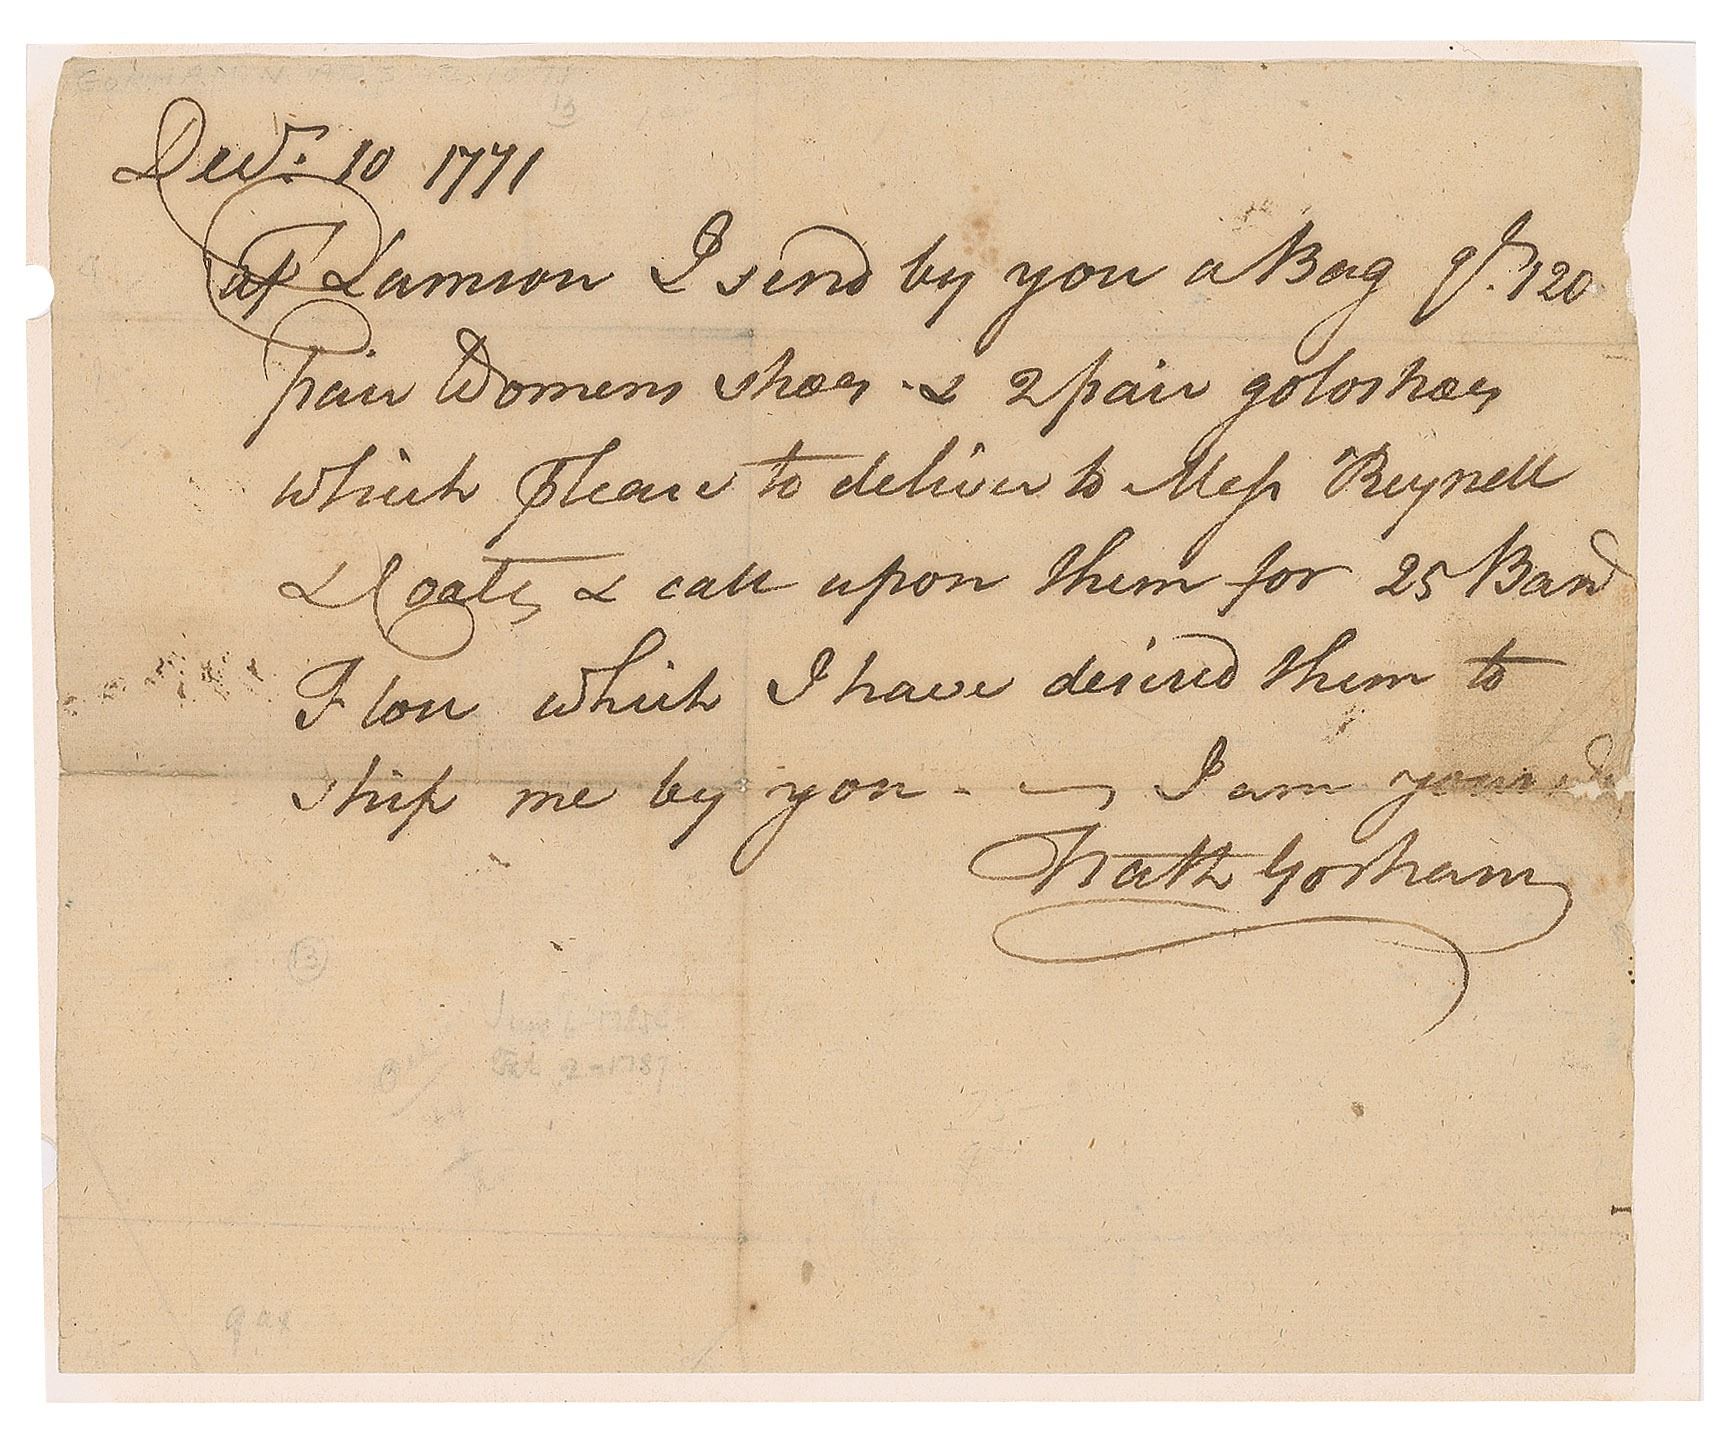 Decr. 10 1771
Capt Lamson I send by you a Bag qt. 120
pair Womens shoes & 2 pair goloshoes
which Please to deliver to Mess Reynell
& Coats, & call upon them for 25 Barr
Flou which I have desired them to
ship me by you - I am your
Nath Gorham
13
Feb 2 - 1787